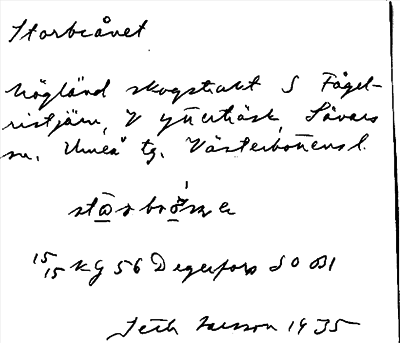 Storbrånet
Högländ skogstrakt S Fågel-
ristjärn, V Ytterträsk, Sävars
sn. Umeå tg. Västerbottens l.
15/15 kg 56 Degerfors SO Bl
Seth Larsson 1935